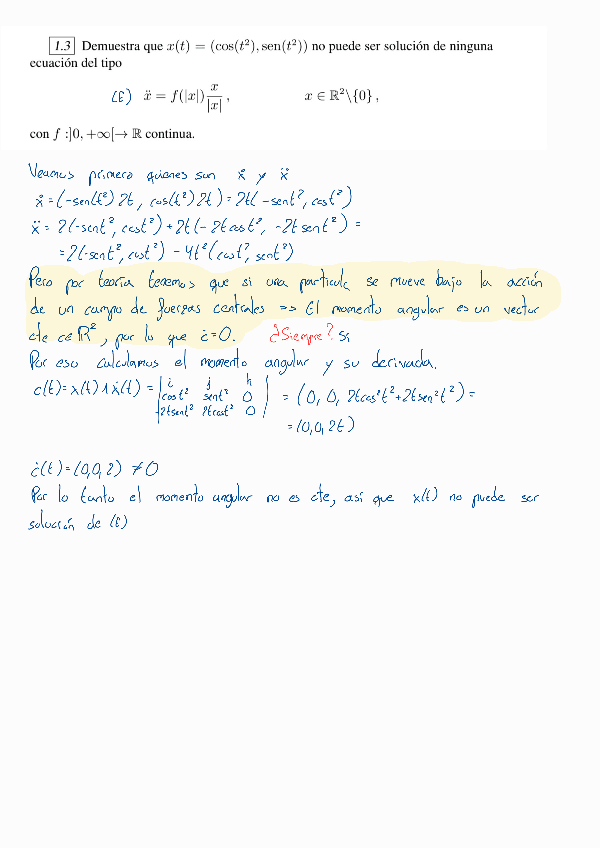 1.3 Demuestra que x(t) = (cos(t²), sen(t²)) no puede ser solución de ninguna
ecuación del tipo
(E) ẍ = f(|x|) x/|x| , x ∈ ℝ²\{0} ,
con f :]0, +∞[→ ℝ continua.
Veamos primero quienes son ẋ y ẍ
ẋ = (-sen(t²) 2t, cos(t²) 2t) = 2t(-sent², cost²)
ẍ = 2(-sent², cost²) + 2t(-2tcost², -2tsent²) =
= 2(-sent², cost²) - 4t²(cost², sent²)
Pero por teoría tenemos que si una partícula se mueve bajo la acción
de un campo de fuerzas centrales => El momento angular es un vector
cte c∈ℝ², por lo que ċ=0. ¿Siempre? Sí
Por eso calculamos el momento angular y su derivada.
c(t) = x(t) ∧ ẋ(t) = | i j k
cost² sent² 0
-2tsent² 2tcost² 0 | = (0, 0, 2tcos²t²+2tsen²t²) =
= (0,0,2t)
ċ(t) = (0,0,2) ≠ 0
Por lo tanto el momento angular no es cte, así que x(t) no puede ser
solución de (E)